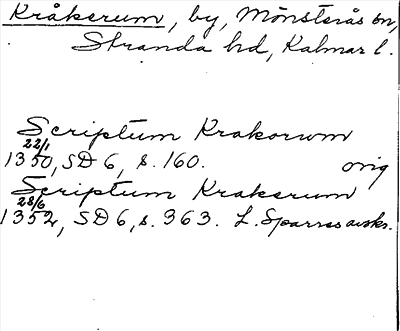 Kråkerum, by, Mönsterås sn,
Stranda hd, Kalmar l.
Scriptum Krakorum
22/1
1350, SD 6, s. 160. orig
Scriptum Krakerum
28/6
1352, SD 6, s. 363. L. Sparres avskr.